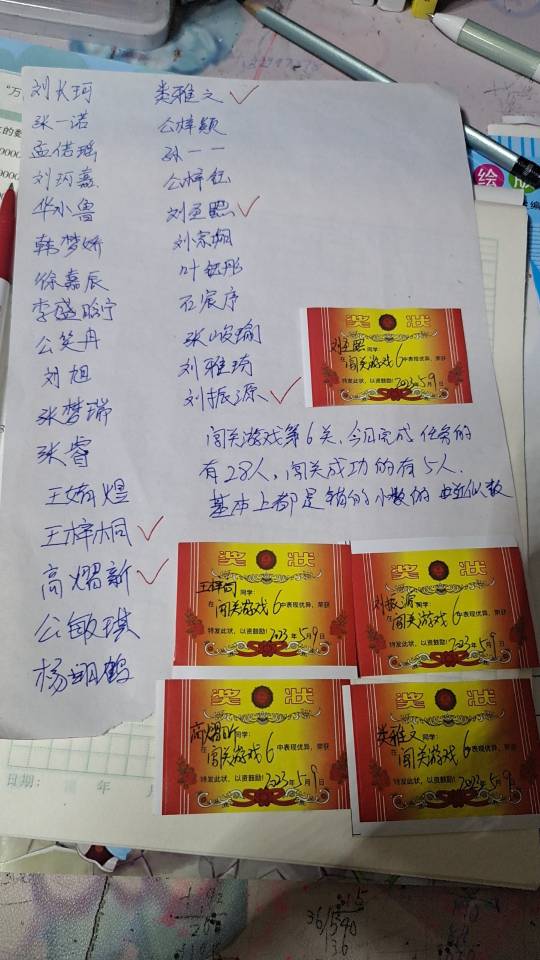 刘长珂
张一诺
孟偌瑶
刘珂嘉
华小鲁
韩梦娇
徐嘉辰
李盛晗宁
公笑冉
刘旭
张梦瑞
张睿
王婧煜
王梓桐
高熠新
公敏琪
杨翔鹤
类雅文
公梓颖
孙一一
公梓钰
刘圣熙
刘宗翱
叶钰彤
石宸序
张峻瑜
刘雅琦
刘振源
闯关游戏第6关、今日完成任务的
有28人，闯关成功的有5人.
基本上都是错的小数的近似数
奖 状
刘圣熙同学：
在闯关游戏6中表现优异，荣获
特发此状，以资鼓励！2023年5月9日
奖 状
王梓桐同学：
在闯关游戏6中表现优异，荣获
特发此状，以资鼓励！2023年5月9日
奖 状
刘振源同学：
在闯关游戏6中表现优异，荣获
特发此状，以资鼓励！2023年5月9日
奖 状
高熠新同学：
在闯关游戏6中表现优异，荣获
特发此状，以资鼓励！2023年5月9日
奖 状
类雅文同学：
在闯关游戏6中表现优异，荣获
特发此状，以资鼓励！2023年5月9日
绘
日期： 年 月